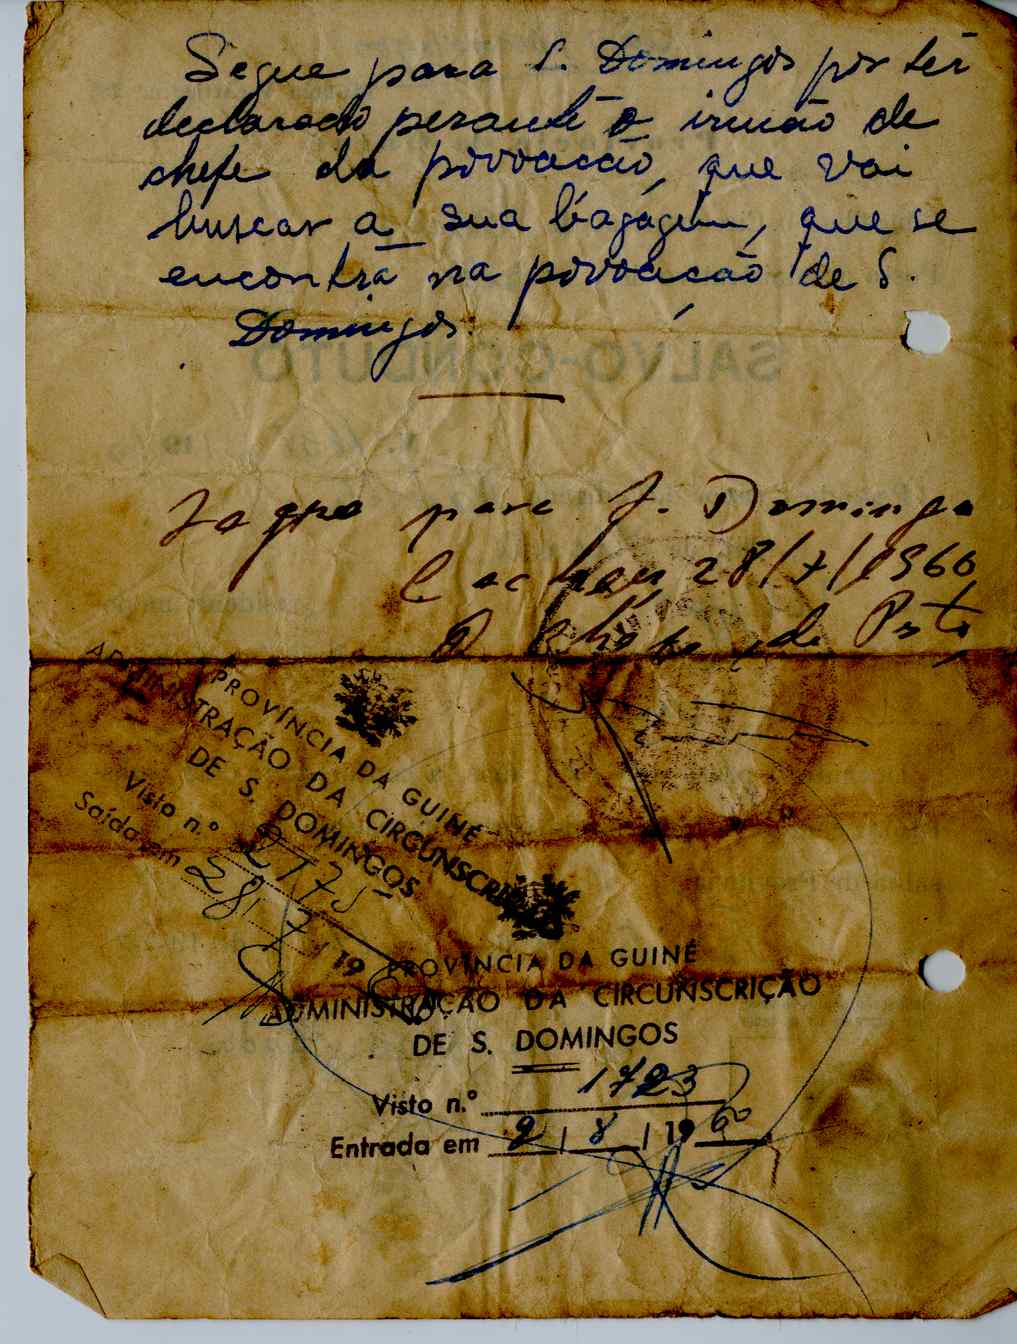 Segue para S. Domingos por ter
declarado perante o irmão de
chefe da povoacão, que vai
buscar a sua bagagem, que se
encontra na povoacão de S.
Domingos.
SALVO-CONDUTO
Segue para S. Domingos
Cacheu, 28/7/1960
O Chefe de Posto
PROVÍNCIA DA GUINÉ
ADMINISTRAÇÃO DA CIRCUNSCRIÇÃO
DE S. DOMINGOS
Visto n.º
Saída em 28/7/19
PROVÍNCIA DA GUINÉ
ADMINISTRAÇÃO DA CIRCUNSCRIÇÃO
DE S. DOMINGOS
Visto n.º 1723
Entrada em 2/8/1960